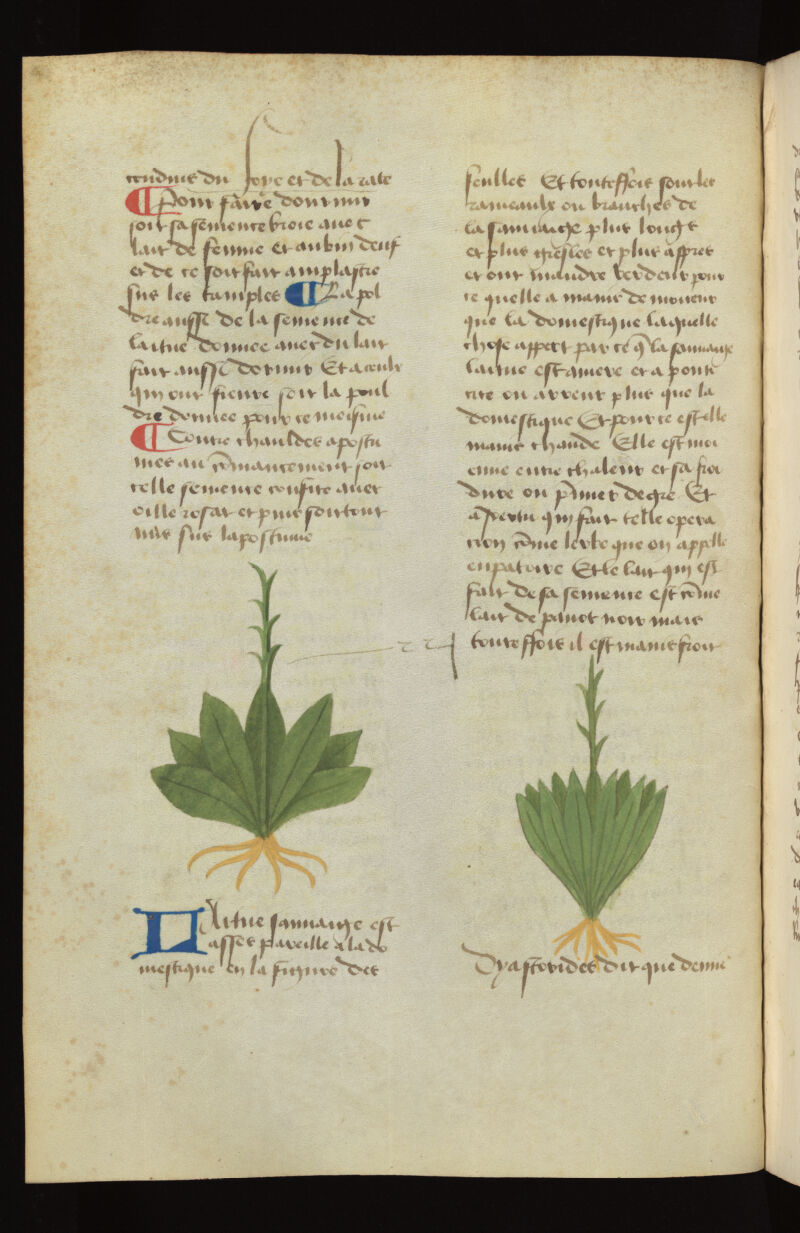 conduis du foye et de la rate
¶ Pour faire dormir
soit sa semence broie avec
lait de femme et aubin deuf
et de ce soit fait amplastre
sus les tamples ¶ La pol
dre aussi de la semence de
laitue donnee avec du lait
fait aussi dormir Et a ceulx
qui ont fievre soit la poul
dre donnee pour ce meisme
¶ Contre chauldes apostu
mes au cōmancement soit
celle semence confite avec
oille rosat et puis soit tout
mis sus lapostume
Laitue sauvaige est
asses pareille a la do
mestique en la figure des
feulles Et touteffois sont les
rameaulx ou branches de
la sauvaige plus longs
et plus gresles et plus aspres
et ont maindre verdeur pour
ce quelle a mains de moiteur
que la domestique laquelle
chose appert par ce q̄ la sauvaige
laitue est amere et a ponti
cite ou arreur plus que la
domestique Et pour ce est elle
mains chaude Elle est moi
enne entre chaleur et sa froi
dure ou p̄mier degre Et
a vertu qui fait telle opera
cion cōme lerbe que on appelle
eupatoire Et le lait qui est
fait de sa semence est cōme
lait de pavot noir mais
touteffois il est mains froit
Dyascorides dit que demie